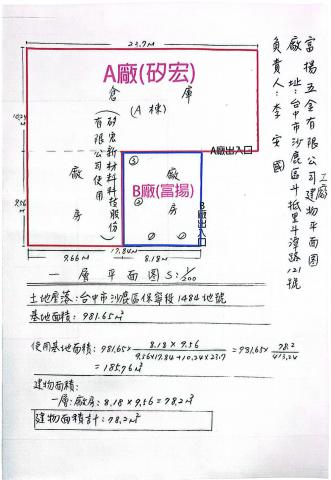 富揚五金有限公司工廠建物平面圖
廠址：台中市沙鹿區斗抵里斗潭路121號
負責人：李安國
23.7M
A廠(矽宏)
倉庫
(A棟)
10.24
A廠出入口
矽宏新材料科技股份
有限公司使用
廠房
廠房
B廠(富揚)
B廠出入口
9.56
17.84M
9.66M
8.18M
一層平面圖S：1/200
土地座落：台中市沙鹿區保寧段1484地號
基地面積：981.65㎡
使用基地面積：981.65× 8.18×9.56 / 9.56×17.84+10.24×23.7 = 981.65× 78.2 / 413.24
= 185.76㎡
建物面積：
一層：廠房：8.18×9.56=78.2㎡
建物面積計：78.2㎡